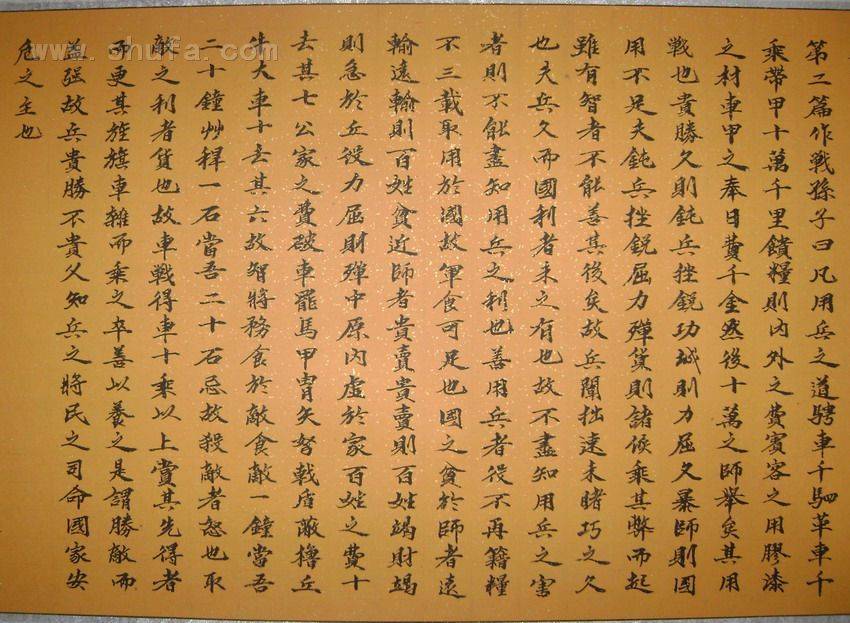 第二篇作戰孫子曰凡用兵之道騁車千駟革車千
乘帶甲十萬千里饋糧則內外之費賓客之用膠漆
之材車甲之奉日費千金然後十萬之師舉矣其用
戰也貴勝久則鈍兵挫銳功城則力屈久暴師則國
用不足夫鈍兵挫銳屈力殫貨則諸侯乘其弊而起
雖有智者不能善其後矣故兵聞拙速未睹巧之久
也夫兵久而國利者未之有也故不盡知用兵之害
者則不能盡知用兵之利也善用兵者役不再籍糧
不三載取用於國故軍食可足也國之貧於師者遠
輸遠輸則百姓貧近師者貴賣貴賣則百姓竭財竭
則急於丘役力屈財殫中原內虛於家百姓之費十
去其七公家之費破車罷馬甲冑矢弩戟盾蔽櫓丘
牛大車十去其六故智將務食於敵食敵一鐘當吾
二十鐘艸稈一石當吾二十石忌故殺敵者怒也取
敵之利者貨也故車戰得車十乘以上賞其先得者
而更其旌旗車雜而乘之卒善以養之是謂勝敵而
益強故兵貴勝不貴久知兵之將民之司命國家安
危之主也
www.shufa.com